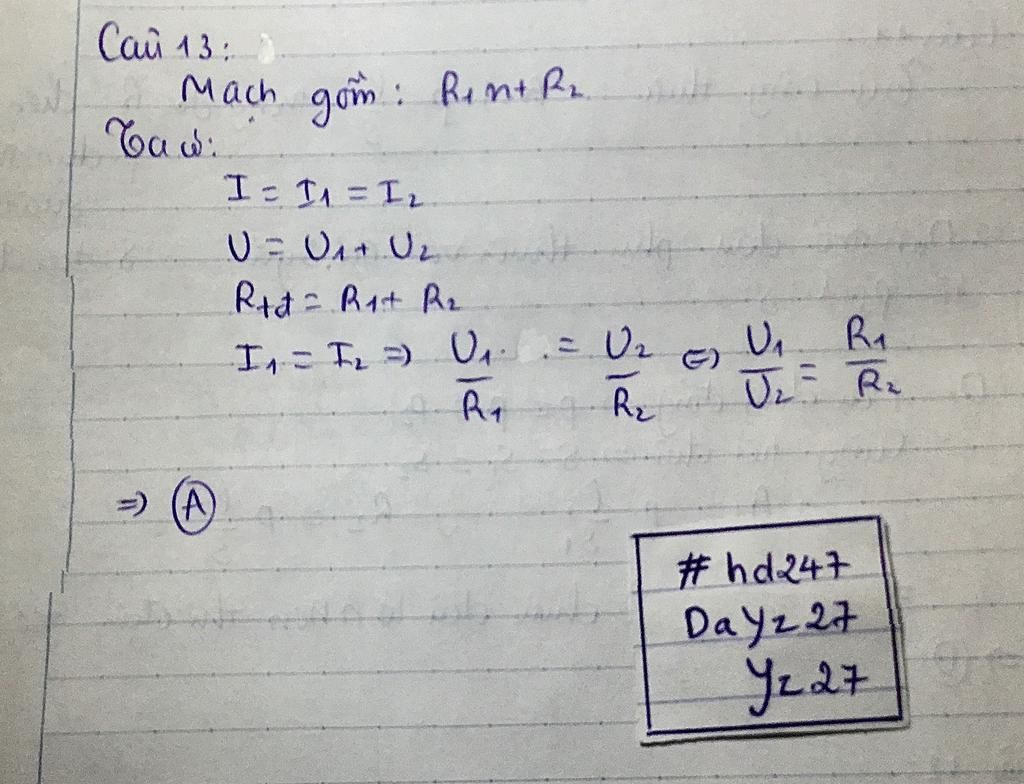 Câu 13:
Mạch gồm: R₁ nt R₂
Ta có:
I = I₁ = I₂
U = U₁ + U₂
Rtđ = R₁ + R₂
I₁ = I₂ => U₁/R₁ = U₂/R₂ <=> U₁/U₂ = R₁/R₂
=> Ⓐ
# hd247
DaYz27
Yz27